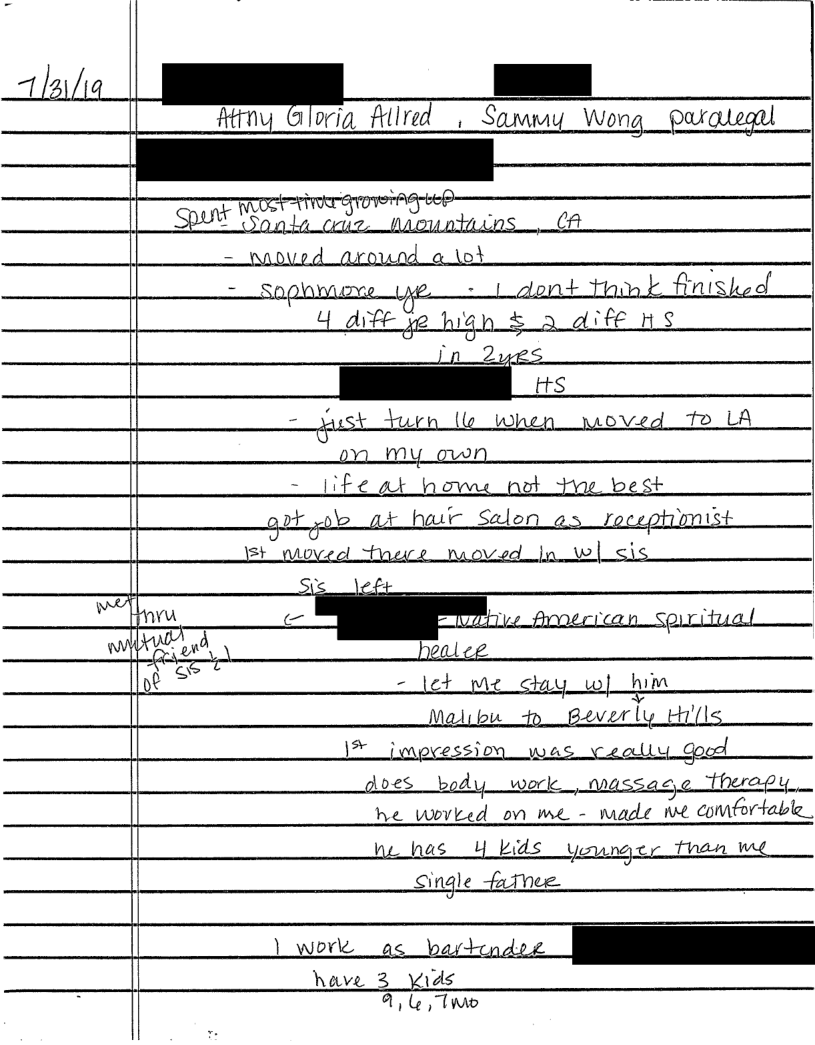 7/31/19
Attny Gloria Allred , Sammy Wong paralegal
Spent most time growing up
- Santa cruz mountains , CA
- moved around a lot
- sophmore yr - I dont think finished
4 diff jr high & 2 diff HS
in 2yrs
HS
- just turn 16 when moved to LA
on my own
- life at home not the best
got job at hair salon as receptionist
1st moved there moved in w/ sis
Sis left
met
thru
mutual
friend
of sis &
← - Native American spiritual
healer
- let me stay w/ him
Malibu to Beverly Hills
1st impression was really good
does body work, massage therapy,
he worked on me - made me comfortable
he has 4 kids younger than me
single father
I work as bartender
have 3 kids
9, 6, 7mo